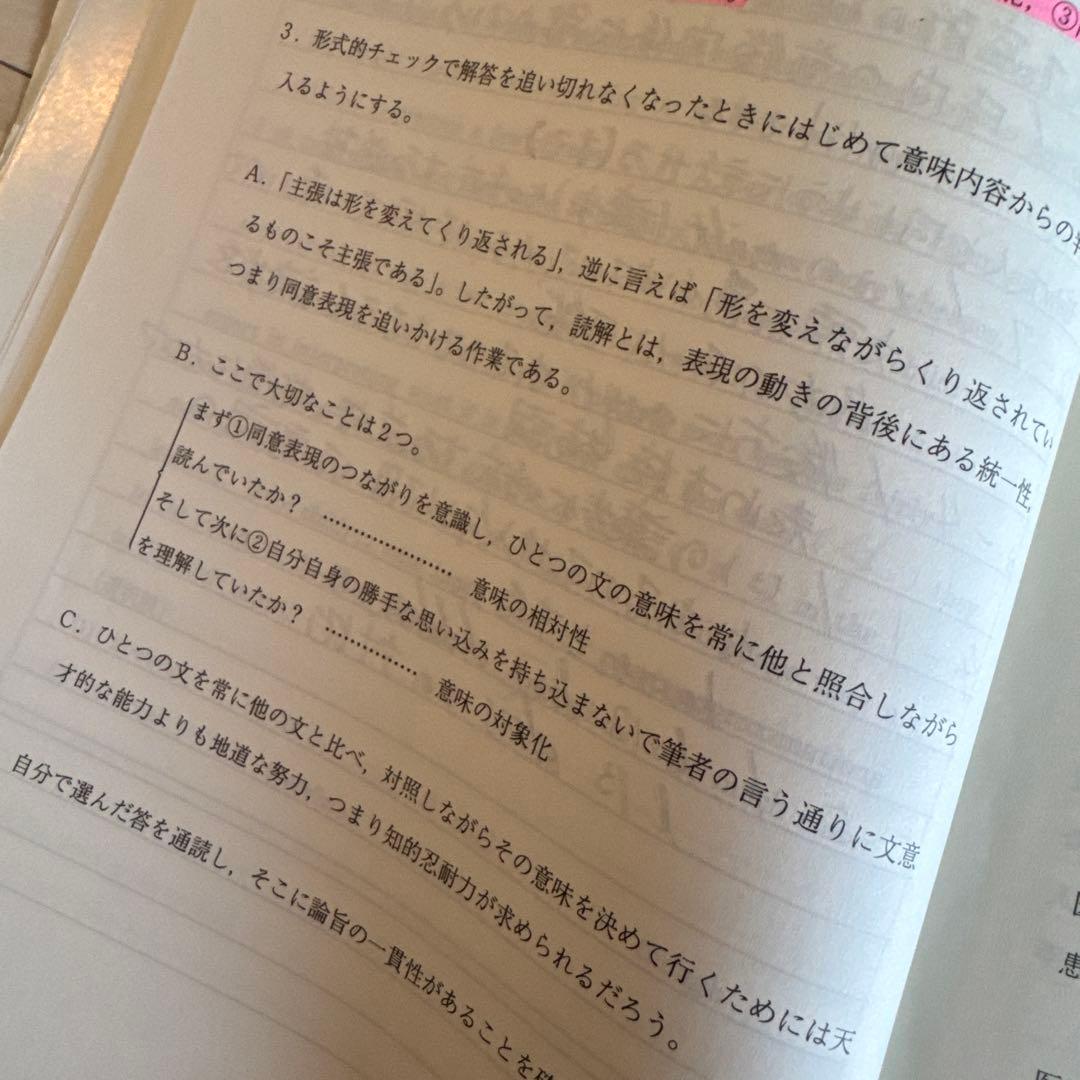 ③
3. 形式的チェックで解答を追い切れなくなったときにはじめて意味内容からの
入るようにする。
A.「主張は形を変えてくり返される」，逆に言えば「形を変えながらくり返されてい
るものこそ主張である」。したがって，読解とは，表現の動きの背後にある統一性，
つまり同意表現を追いかける作業である。
B. ここで大切なことは2つ。
まず①同意表現のつながりを意識し，ひとつの文の意味を常に他と照合しながら
読んでいたか？ ………………… 意味の相対性
そして次に②自分自身の勝手な思い込みを持ち込まないで筆者の言う通りに文意
を理解していたか？ …………… 意味の対象化
C. ひとつの文を常に他の文と比べ，対照しながらその意味を決めて行くためには天
才的な能力よりも地道な努力，つまり知的忍耐力が求められるだろう。
自分で選んだ答を通読し，そこに論旨の一貫性があることを
患